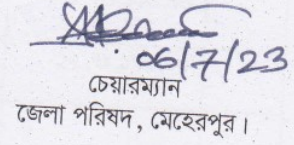 06/7/23
চেয়ারম্যান
জেলা পরিষদ, মেহেরপুর।